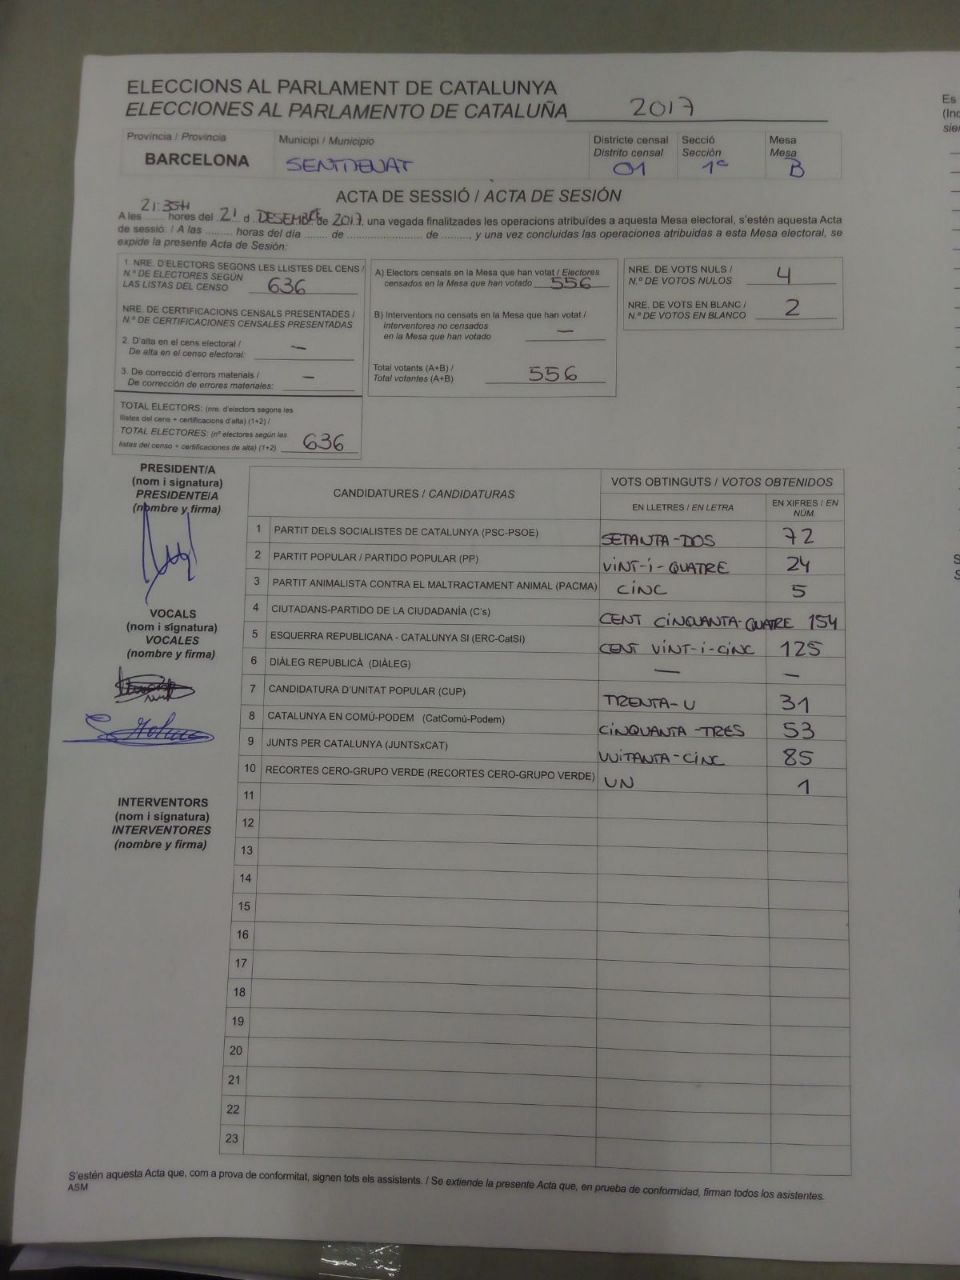 ELECCIONS AL PARLAMENT DE CATALUNYA
ELECCIONES AL PARLAMENTO DE CATALUÑA 2017
Província / Provincia
BARCELONA
Municipi / Municipio
SENTMENAT
Districte censal
Distrito censal
01
Secció
Sección
1ª
Mesa
Mesa
B
ACTA DE SESSIÓ / ACTA DE SESIÓN
21:35H
A les ........ hores del 21 d DESEMBRE de 2017 una vegada finalitzades les operacions atribuïdes a aquesta Mesa electoral, s'estén aquesta Acta
de sessió: / A las ......... horas del día ....... de ........................ de ........., y una vez concluidas las operaciones atribuidas a esta Mesa electoral, se
expide la presente Acta de Sesión:
1. NRE. D'ELECTORS SEGONS LES LLISTES DEL CENS /
N.º DE ELECTORES SEGÚN
LAS LISTAS DEL CENSO 636
NRE. DE CERTIFICACIONS CENSALS PRESENTADES /
N.º DE CERTIFICACIONES CENSALES PRESENTADAS
2. D'alta en el cens electoral /
De alta en el censo electoral: —
3. De correcció d'errors materials /
De corrección de errores materiales: —
TOTAL ELECTORS: (nre. d'electors segons les
llistes del cens + certificacions d'alta) (1+2) /
TOTAL ELECTORES: (nº electores según las
listas del censo + certificaciones de alta) (1+2) 636
A) Electors censats en la Mesa que han votat / Electores
censados en la Mesa que han votado 556
B) Interventors no censats en la Mesa que han votat /
Interventores no censados
en la Mesa que han votado —
Total votants (A+B) /
Total votantes (A+B) 556
NRE. DE VOTS NULS /
N.º DE VOTOS NULOS 4
NRE. DE VOTS EN BLANC /
N.º DE VOTOS EN BLANCO 2
PRESIDENT/A
(nom i signatura)
PRESIDENTE/A
(nombre y firma)
VOCALS
(nom i signatura)
VOCALES
(nombre y firma)
INTERVENTORS
(nom i signatura)
INTERVENTORES
(nombre y firma)
CANDIDATURES / CANDIDATURAS
VOTS OBTINGUTS / VOTOS OBTENIDOS
EN LLETRES / EN LETRA
EN XIFRES / EN NÚM.
1 PARTIT DELS SOCIALISTES DE CATALUNYA (PSC-PSOE) SETANTA-DOS 72
2 PARTIT POPULAR / PARTIDO POPULAR (PP) VINT-I-QUATRE 24
3 PARTIT ANIMALISTA CONTRA EL MALTRACTAMENT ANIMAL (PACMA) CINC 5
4 CIUTADANS-PARTIDO DE LA CIUDADANÍA (C's) CENT CINQUANTA-QUATRE 154
5 ESQUERRA REPUBLICANA - CATALUNYA SI (ERC-CatSí) CENT VINT-I-CINC 125
6 DIÀLEG REPUBLICÀ (DIÀLEG) — —
7 CANDIDATURA D'UNITAT POPULAR (CUP) TRENTA-U 31
8 CATALUNYA EN COMÚ-PODEM (CatComú-Podem) CINQUANTA-TRES 53
9 JUNTS PER CATALUNYA (JUNTSxCAT) VUITANTA-CINC 85
10 RECORTES CERO-GRUPO VERDE (RECORTES CERO-GRUPO VERDE) UN 1
11
12
13
14
15
16
17
18
19
20
21
22
23
S'estén aquesta Acta que, com a prova de conformitat, signen tots els assistents. / Se extiende la presente Acta que, en prueba de conformidad, firman todos los asistentes.
ASM
Es
(Inc
sien
S
S